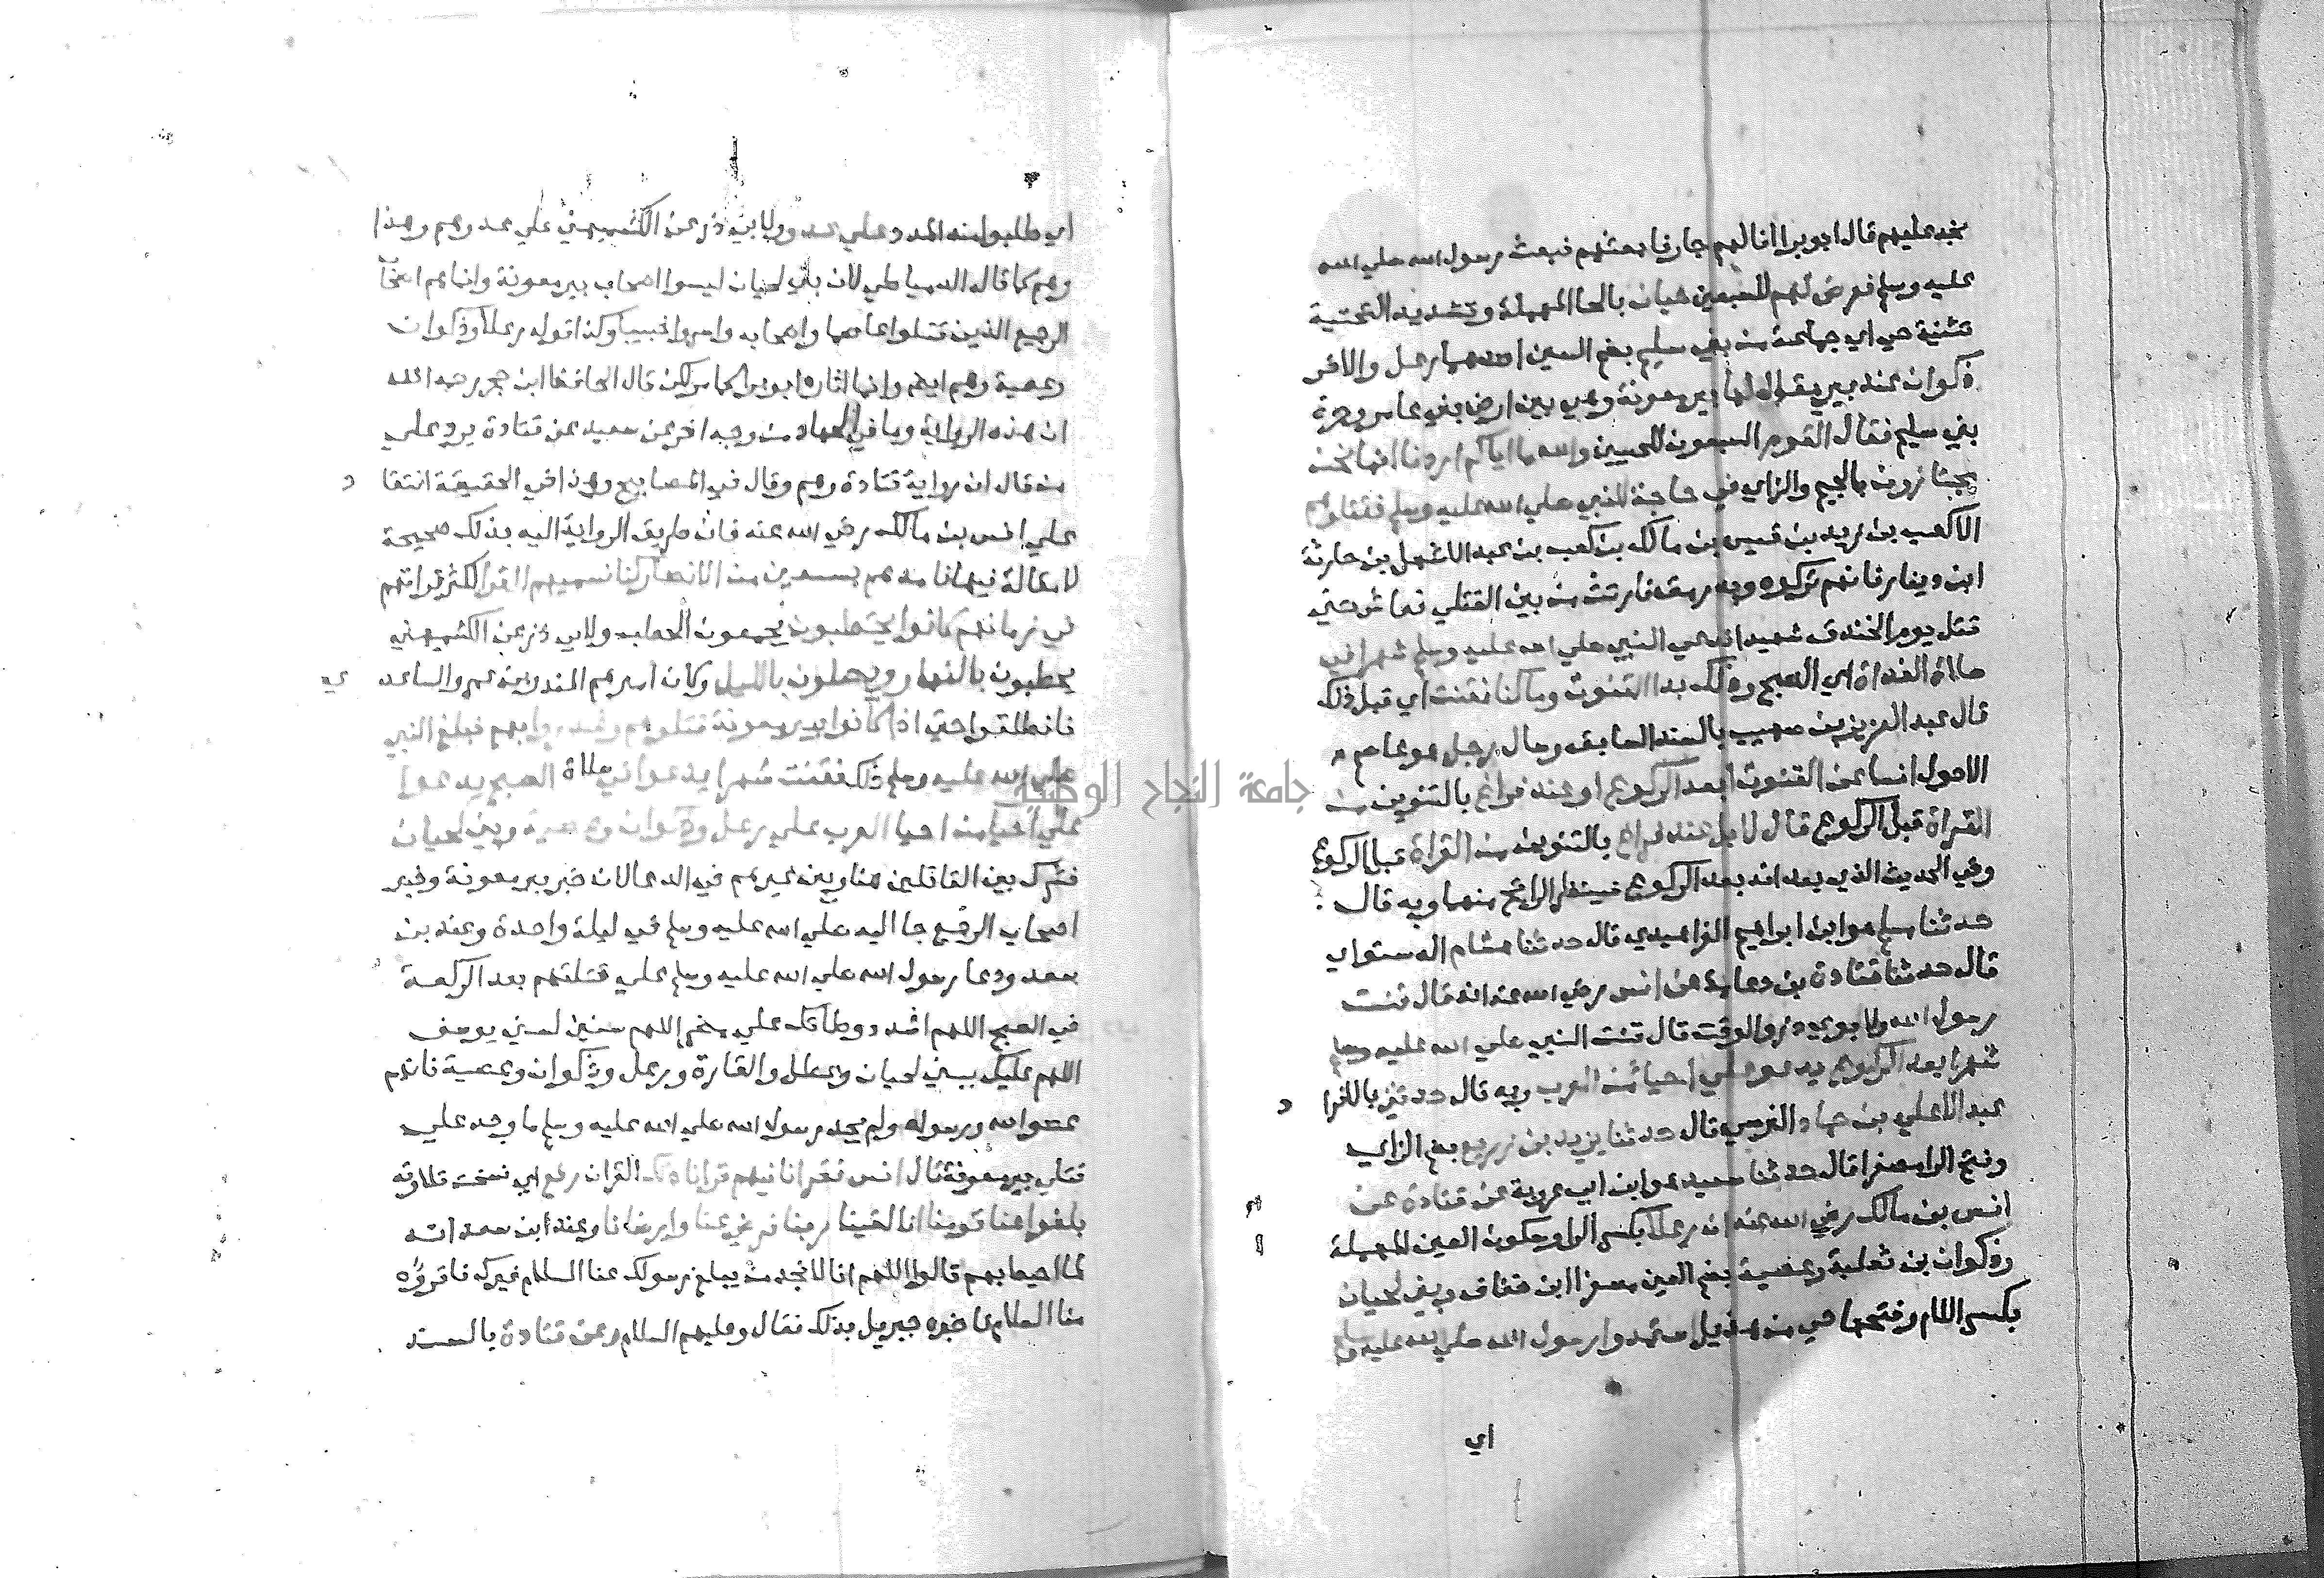 نجد عليهم قال ابو برا انا لهم جار فابعثهم فبعث رسول الله صلي الله
عليه وسلم فعرض لهم للسبعين حيان بالحا المهملة وتشديد التحتية
تثنية حي اي جماعة من بني سليم بضم السين احدهما رعل والاخر
ذكوان عند بير يقال لها بير معونة وهي بين ارض بني عامر وحرة
بني سليم فقال القوم السبعون للحيين والله ما اياكم اردنا انما نحن
مجتازون بالجيم والزاي في حاجة للنبي صلي الله عليه وسلم فقتلوهم
الا كعب بن زيد بن قيس بن مالك بن كعب بن عبد الاشهل بن حارثة
ابن دينار فانهم تركوه وبه رمق فارتث من بين القتلي فعاش حتي
قتل يوم الخندق شهيدا فدعي النبي صلي الله عليه وسلم شهرا في
صلاة الغداة اي الصبح وذلك بدا القنوت وما كنا نقنت اي قبل ذلك
قال عبد العزيز بن صهيب بالسند السابق وسال رجل هو عاصم
الاحول انسا عن القنوت ابعد الركوع او عند فراغ بالتنوين من
القراة قبل الركوع قال لا بل عند فراغ بالتنوين من القراة قبل الركوع
وفي الحديث الذي بعده انه بعد الركوع فينظر الراجح منهما وبه قال
حدثنا مسلم هو ابن ابراهيم الفراهيدي قال حدثنا هشام الدستواي
قال حدثنا قتادة بن دعامة عن انس رضي الله عنه انه قال قنت
رسول الله ولابوي ذر والوقت قال قنت النبي صلي الله عليه وسلم
شهرا بعد الركوع يدعو علي احيا من العرب وبه قال حدثني بالافرا د
عبد الاعلي بن حماد النرسي قال حدثنا يزيد بن زريع بضم الزاي
وفتح الرا مصغرا قال حدثنا سعيد هو ابن ابي عروبة عن قتادة عن
انس بن مالك رضي الله عنه ان رعلا بكسر الرا وسكون العين المهملة
وذكوان بن ثعلبة وعصية بضم العين مصغرا ابن خفاف وبني لحيان
بكسر اللام وفتحها حي من هذيل استمدوا رسول الله صلي الله عليه وسلم
اي
اي طلبوا منه المدد علي عدو ولابي ذر عن الكشميهني علي عدوهم وهذا
وهم كما قال الدمياطي لان بني لحيان ليسوا اصحاب بير معونة وانما هم اصحاب
الرجيع الذين قتلوا عاصما واصحابه واسروا خبيبا وكذا قوله رعلا وذكوان
وعصية وهم ايضا وانما اتاه ابو برا لكن قال الحافظ ابن حجر رحمه الله
ان هذه الرواية وما في الجهاد من وجه اخر عن سعيد عن قتادة يرد علي
من قال ان رواية قتادة وهم وقال في المصابيح وهذا في الحقيقة انتقا د
علي انس بن مالك رضي الله عنه فان طريق الرواية اليه بذلك صحيحة
لا مقالة فيها فامدهم بسبعين من الانصار كنا نسميهم القرا لكثرة قراتهم
في زمانهم كانوا يحتطبون يجمعون الحطب ولابي ذر عن الكشميهني
يحطبون بالنهار ويصلون بالليل وكان اميرهم المنذر بن عمرو الساعد ي
فانطلقوا حتي اذا كانوا ببير معونة قتلوهم وغدروا بهم فبلغ النبي
صلي الله عليه وسلم ذلك فقنت شهرا يدعوا في صلاة الصبح يدعوا
علي احيا من احيا العرب علي رعل وذكوان وعصية وبني لحيان
فشرك بين القاتلين هنا وبين غيرهم في الدعا لان خبر بير معونة وخبر
اصحاب الرجيع جا اليه صلي الله عليه وسلم في ليلة واحدة وعند بن
سعد ودعا رسول الله صلي الله عليه وسلم علي قتلتهم بعد الركعة
في الصبح اللهم اشدد وطاتك علي مضر اللهم سنين كسني يوسف
اللهم عليك ببني لحيان وعضل والقارة ورعل وذكوان وعصية فانهم
عصوا الله ورسوله ولم يجد رسول الله صلي الله عليه وسلم ما وجد علي
قتلي بير معونة قال انس فقرانا فيهم قرانا ثم ان ذلك القران رفع اي نسخت تلاوته
بلغوا عنا قومنا انا لقينا ربنا فرضي عنا وارضانا وعند ابن سعد انه
لما احيط بهم قالوا اللهم انا لا نجد من يبلغ رسولك عنا السلام غيرك فاقروه
منا السلام فاخبره جبريل بذلك فقال وعليهم السلام وعن قتادة بالسند
جامعة النجاح الوطنية